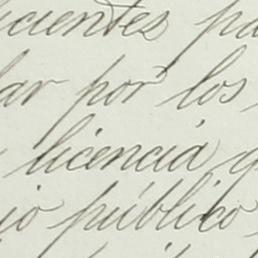 cientes pa
ar por los
licencia q
io público